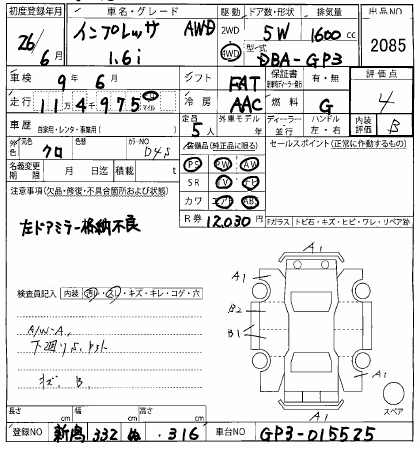 初度登録年月 車名・グレード 駆動 ドア数・形状 排気量 出品NO
26/6 インプレッサ AWD 2WD 5W 1600cc 2085
1.6i 4WD 型式 DBA-GP3
車検 9年6月 シフト FAT 保証書 有・無 評価点
走行 11万4千975 マイル 冷房 AAC 燃料 G 4
車歴 自家用・レンタ・事業用( ) 定員 5人 外車モデル 年 ディーラー・並行 ハンドル 左・右 内装評価 B
外色 元色 クロ 色替 カラーNO D4S 装備品(純正品に限る) セールスポイント(正常に動作するもの)
名義変更期限 月 日迄 積載 t PS PW AW
注意事項(欠品・修復・不具合箇所および状態) SR TV ナビ
左ドアミラー格納不良 カワ エアB ABS
R券 12,030円 Fガラス トビ石・キズ・ヒビ・ワレ・リペア跡
A1
A1
B2
検査員記入 内装 汚れ・スレ・キズ・キレ・コゲ・穴
B1
A/W-A,
A1
キズ. B.
スペア
A1
長さ cm 幅 cm 高さ cm
登録NO 新潟 332 ぬ ・316 車台NO GP3-015525